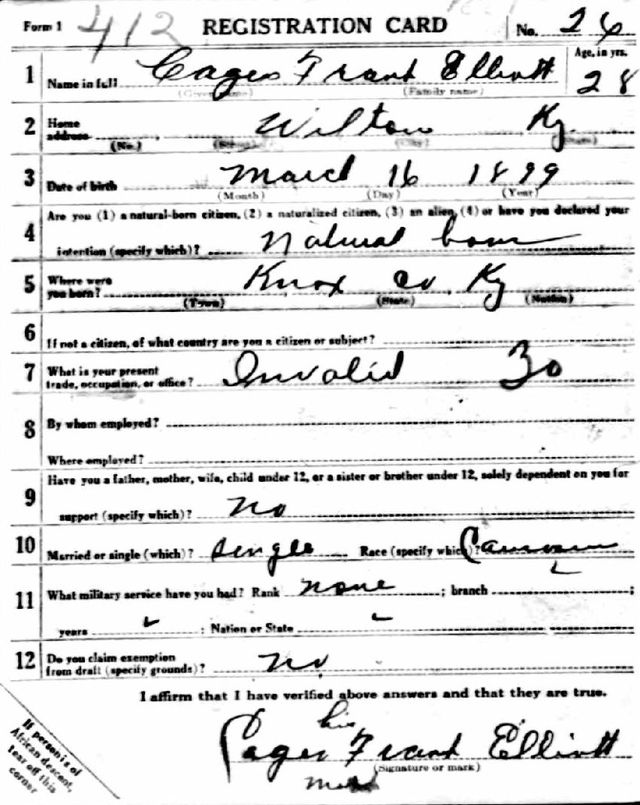 Form 1 412 REGISTRATION CARD No. 26
1 Name in full Cager Frank Elliott Age, in yrs. 28
(Given name) (Family name)
2 Home address Wilton Ky.
(No.) (Street) (City) (State)
3 Date of birth March 16 1899
(Month) (Day) (Year)
4 Are you (1) a natural-born citizen, (2) a naturalized citizen, (3) an alien, (4) or have you declared your
intention (specify which)? Natural born
5 Where were you born? Knox Co Ky
(Town) (State) (Nation)
6 If not a citizen, of what country are you a citizen or subject?
7 What is your present trade, occupation, or office? Invalid 30
8 By whom employed?
Where employed?
9 Have you a father, mother, wife, child under 12, or a sister or brother under 12, solely dependent on you for
support (specify which)? no
10 Married or single (which)? single Race (specify which)?
11 What military service have you had? Rank none ; branch ;
years ; Nation or State
12 Do you claim exemption from draft (specify grounds)? no
I affirm that I have verified above answers and that they are true.
his
Cager Frank Elliott
(Signature or mark)
mark
If person is of
African descent,
tear off this
corner